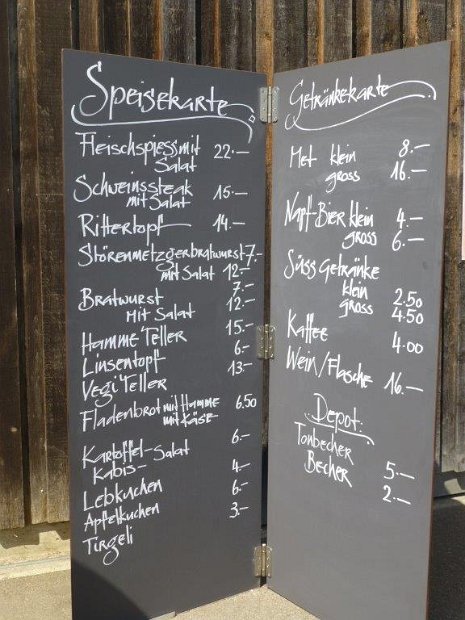 Speisekarte
Fleischspiess mit
Salat 22.—
Schweinssteak
mit Salat 15.—
Rittertopf 14.—
Störenmetzgerbratwurst 7.—
mit Salat 12.—
Bratwurst 7.—
Mit Salat 12.—
Hamme Teller 15.—
Linsentopf 6.—
Vegi Teller 13.—
Fladenbrot mit Hamme 6.50
mit Käse
Kartoffel-Salat 6.—
Kabis-
Lebkuchen 4.—
Apfelkuchen 6.—
Tirgeli 3.—
Getränkekarte
Met klein 8.—
gross 16.—
Napf-Bier klein 4.—
gross 6.—
Süss Getränke
klein 2.50
gross 4.50
Kaffee 4.00
Wein/Flasche 16.—
Depot:
Tonbecher 5.—
Becher 2.—